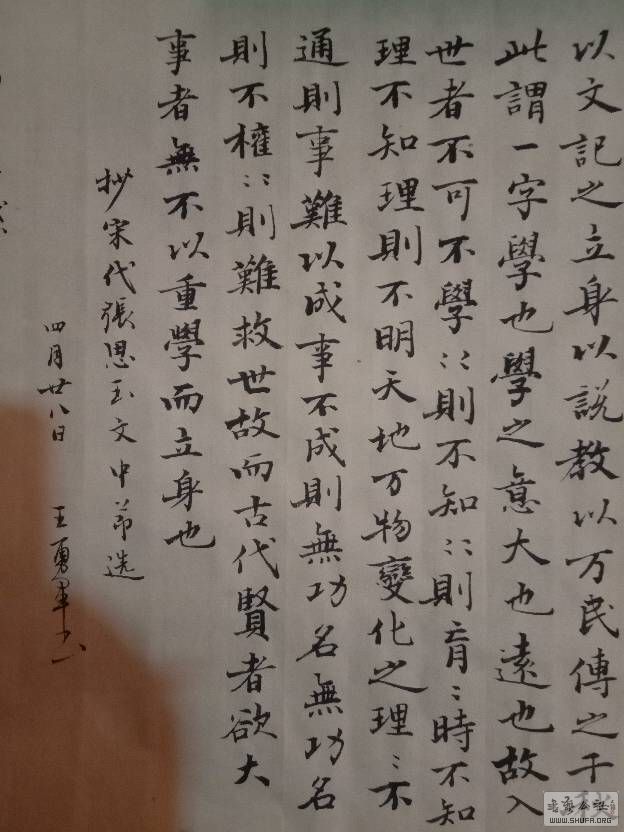 以文記之立身以説教以万民傳之千秋
此謂一字學也學之意大也遠也故入
世者不可不學〻則不知〻則盲〻時不知
理不知理則不明天地万物變化之理〻不
通則事難以成事不成則無功名無功名
則不權〻則難救世故而古代賢者欲大
事者無不以重學而立身也
抄宋代張思玉文中節选
四月廿八日 王勇軍
WWW.SHUFA.ORG